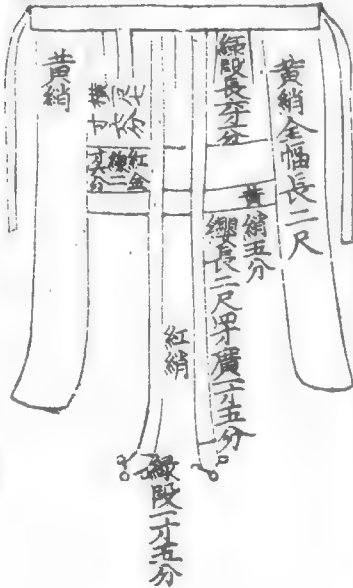 黃綃全幅長二尺
綠段長分
黃綃五分
纓長二尺四寸廣一寸五分
紅綃
綠段一寸五分
紅金
線二
分
黃綃